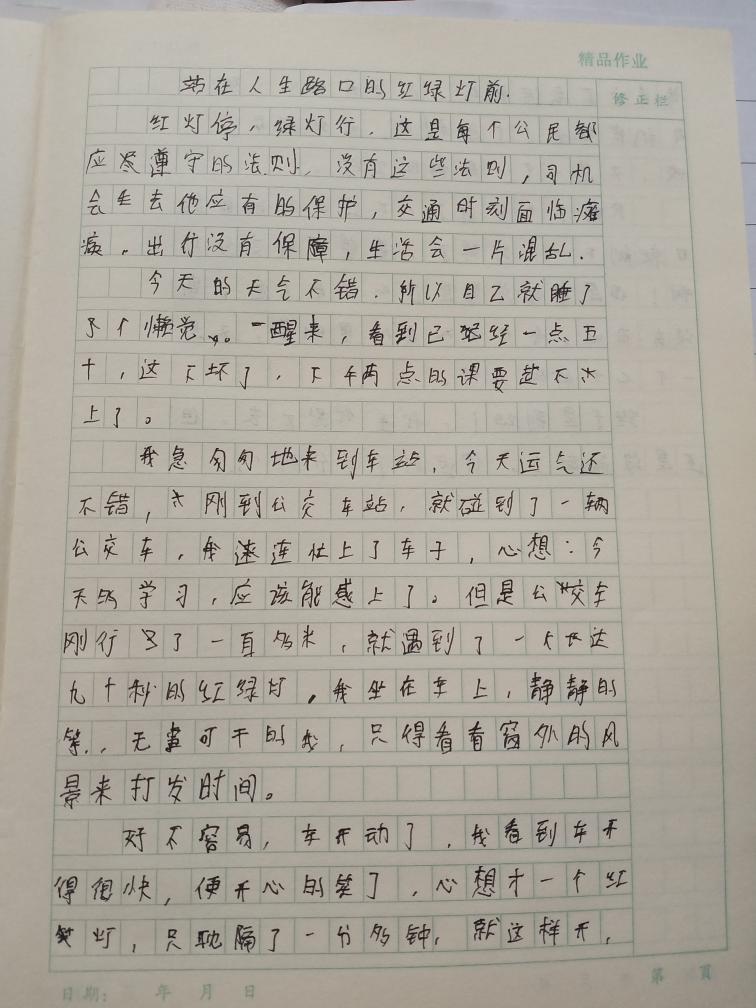 精品作业
修正栏
站在人生路口的红绿灯前.
红灯停,绿灯行.这是每个公民都
应发遵守的法则.没有这些法则,司机
会失去他应有的保护,交通时刻面临瘫
痪.出行没有保障,生活会一片混乱.
今天的天气不错.所以自己就睡了
个懒觉。一醒来,看到已经一点五
十,这下坏了.下午两点的课要赶不
上了。
我急匆匆地来到车站,今天运气还
不错,刚到公交车站,就碰到了一辆
公交车,我速连忙上了车子,心想:今
天的学习,应该能感上了。但是公交车
刚行了一百多米,就遇到了一个长达
九十秒的红绿灯,我坐在车上,静静的
等.,无事可干的我,只得看看窗外的风
景来打发时间。
好不容易,车开动了,我看到车开
得很快,便开心的笑了,心想才一个红
灯,只耽隔了一分多钟,就这样开,
日期: 年 月 日
第 頁